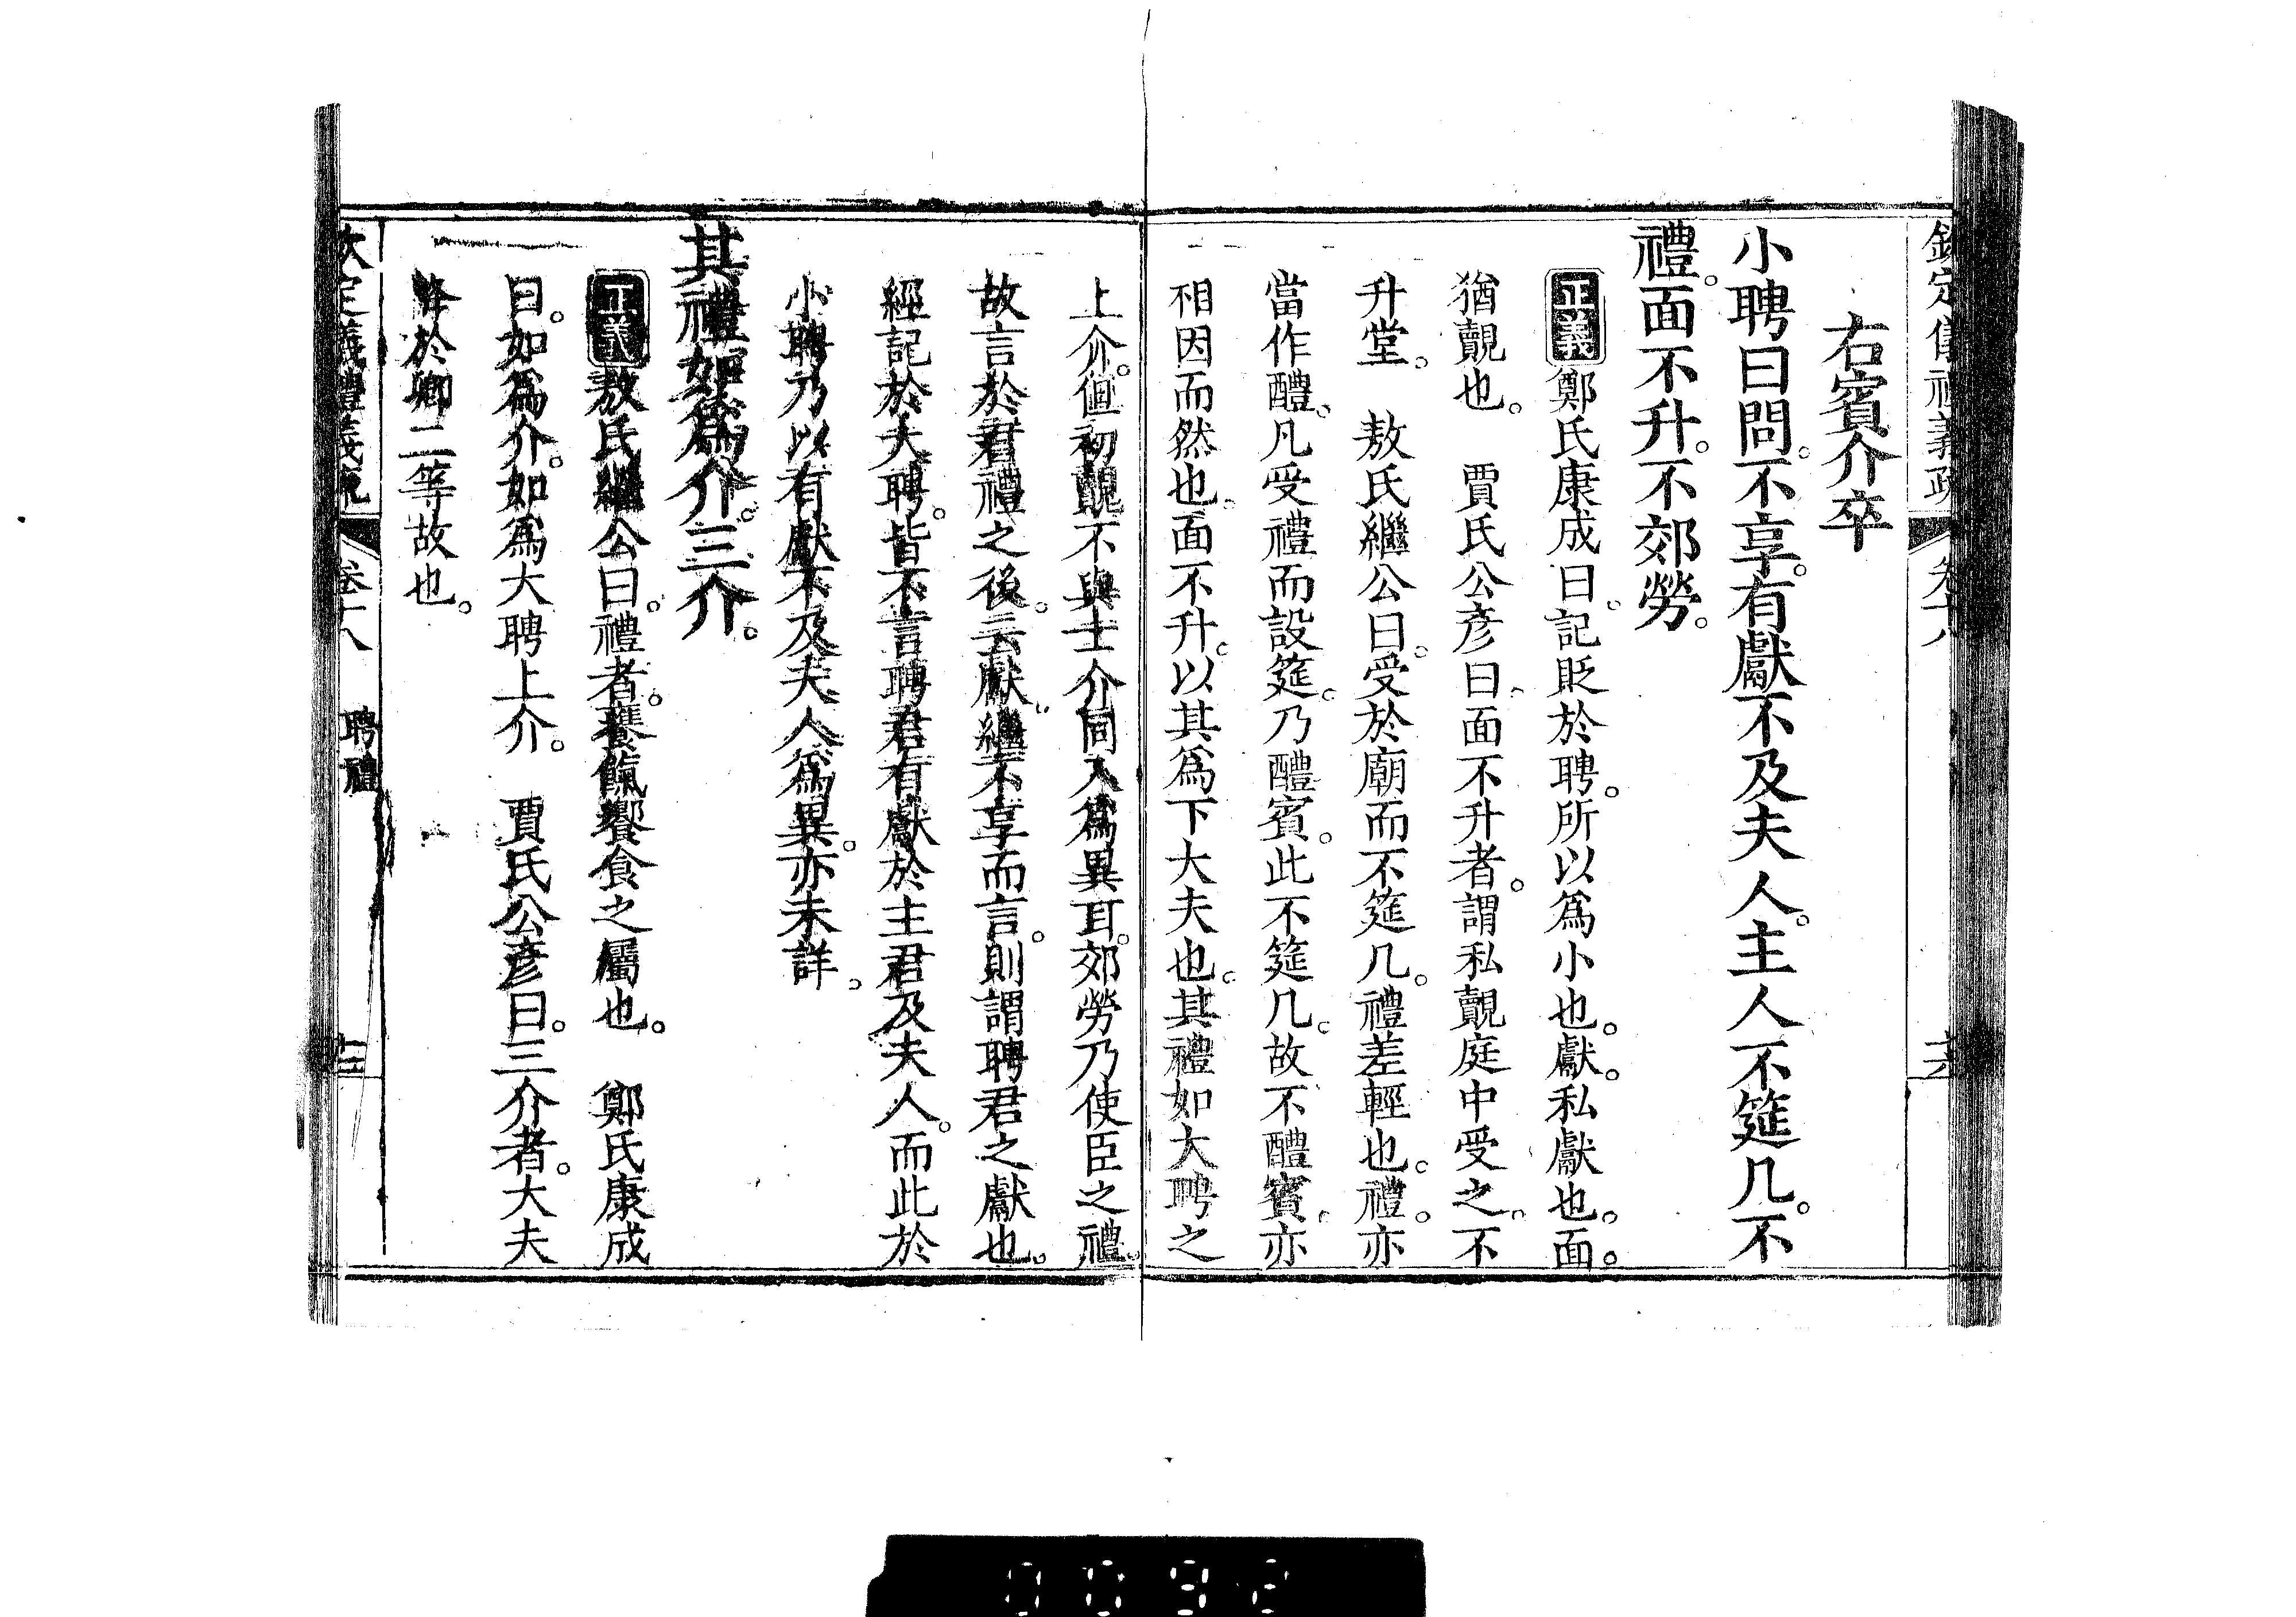 右賓介卒
小聘曰問。不享。有獻不及夫人。主人不筵几。不
禮。面不升。不郊勞。
正義鄭氏康成曰。記貶於聘。所以爲小也。獻。私獻也。面。
猶覿也。 賈氏公彦曰。面不升者。謂私覿庭中受之。不
升堂。 敖氏繼公曰。受於廟而不筵几。禮差輕也。禮。亦
當作醴。凡受禮而設筵。乃醴賓。此不筵几。故不醴賓。亦
相因而然也。面不升。以其爲下大夫也。其禮如大聘之
上介。但初覿不與士介同入爲異耳。郊勞乃使臣之禮。
故言於君禮之後。云獻。繼不享而言。則謂聘君之獻也。
經記於大聘。皆不言聘君有獻於主君及夫人。而此於
小聘乃以有獻不及夫人爲異。亦未詳。
其禮如爲介。三介。
正義敖氏繼公曰。禮者。饔餼饗食之屬也。 鄭氏康成
曰。如爲介。如爲大聘上介。 賈氏公彦曰。三介者。大夫
降於卿二等故也。
卷十八 聘禮